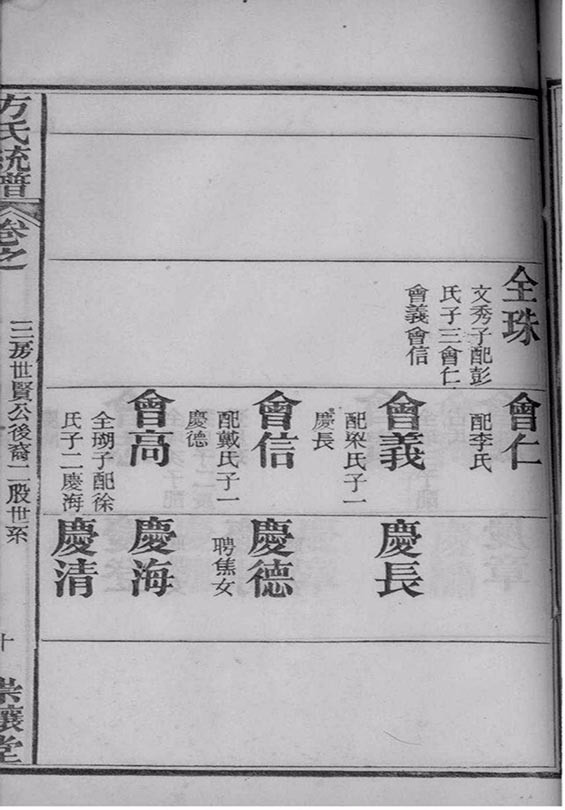 全珠
文秀子配彭
氏子三會仁
會義會信
會仁
配李氏
會義
配梁氏子一
慶長
會信
配戴氏子一
慶德
會高
全瑚子配徐
氏子二慶海
慶長
慶德
聘焦女
慶海
慶清
方氏統譜
卷之
三房世賢公後裔二股世系
十
崇讓堂